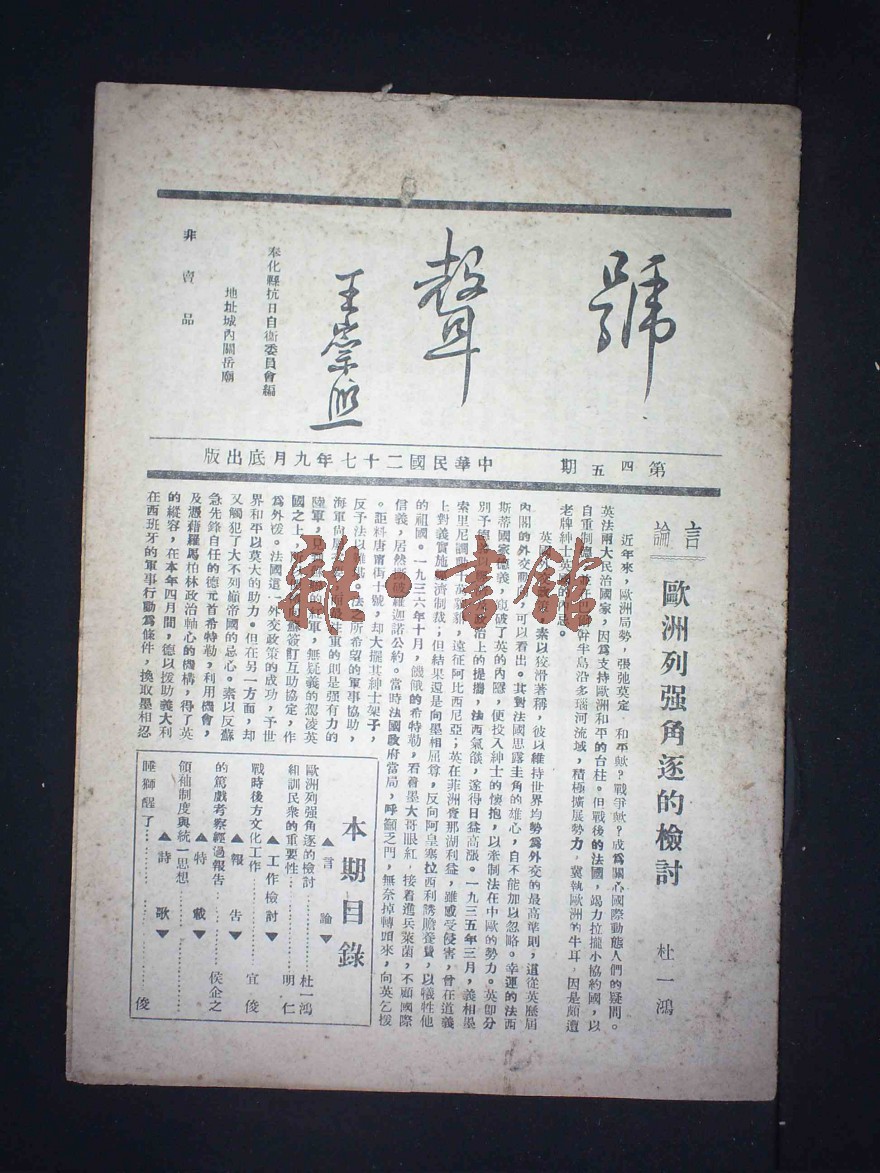 號聲
王崇熙
奉化縣抗日自衛委員會編
地址城內關岳廟
非賣品
第四五期
中華民國二十七年九月底出版
言論
歐洲列强角逐的檢討
杜一鴻
近年來，歐洲局勢，張弛莫定，和平歟？戰爭歟？成為關心國際動態人們的疑問。
英法兩大民治國家，因為支持歐洲和平的台柱。但戰後的法國，竭力拉攏小協約國，以
自重制德，並在巴爾幹半島沿多瑙河流域，積極擴展勢力，冀執歐洲的牛耳，因是頗遭
老牌紳士英國的不足。
英國外交政策，素以狡滑著稱，彼以維持世界均勢為外交的最高準則，這從英歷屆
內閣的外交動向，可以看出。其對法國思露圭角的雄心，自不能加以忽略。幸運的法西
斯蒂國家德義，窺破了英的內隱，便投入紳士的懷抱，以牽制法在中歐的勢力。英即分
別予經濟以及政治上的提攜，法西氣燄，遂得日益高漲。一九三五年三月，義相墨
索里尼調
遠征阿比西尼亞；英在非洲覺那湖利益，雖感受侵害，曾在道義
上對義實施經濟制裁；但結果還是向墨相屈尊，反向阿皇塞拉西利誘贍養費，以犧牲他
的祖國。一九三六年十月，饑餓的希特勒，看着墨大哥眼紅，接着進兵萊茵，不顧國際
信義，居然撕破羅迦諾公約。當時法國政府當局，呼籲乏門，無奈掉轉頭來，向英乞援
。詎料唐甯街十號，却大擺其紳士架子，
反予法以
法之所希望的軍事協助，
海軍尚
重的則是强有力的
陸軍，
軍，無疑義的駕凌英
國之上，
蘇簽訂互助協定，作
為外援。法國這一外交政策的成功，予世
界和平以莫大的助力。但在另一方面，却
又觸犯了大不列顛帝國的忌心。素以反蘇
急先鋒自任的德元首希特勒，利用機會，
及憑藉羅馬柏林政治軸心的機構，得了英
的縱容，在本年四月間，德以援助義大利
在西班牙的軍事行動為條件，換取墨相忍
本期目錄
▲言論▼
歐洲列强角逐的檢討………杜一鴻
組訓民衆的重要性………明仁
▲工作檢討▼
戰時後方文化工作………宜俊
▲報告▼
的篤戲考察經過報告………侯企之
▲特載▼
領袖制度與統一思想………
▲詩歌▼
睡獅醒了………俊
雜·書館